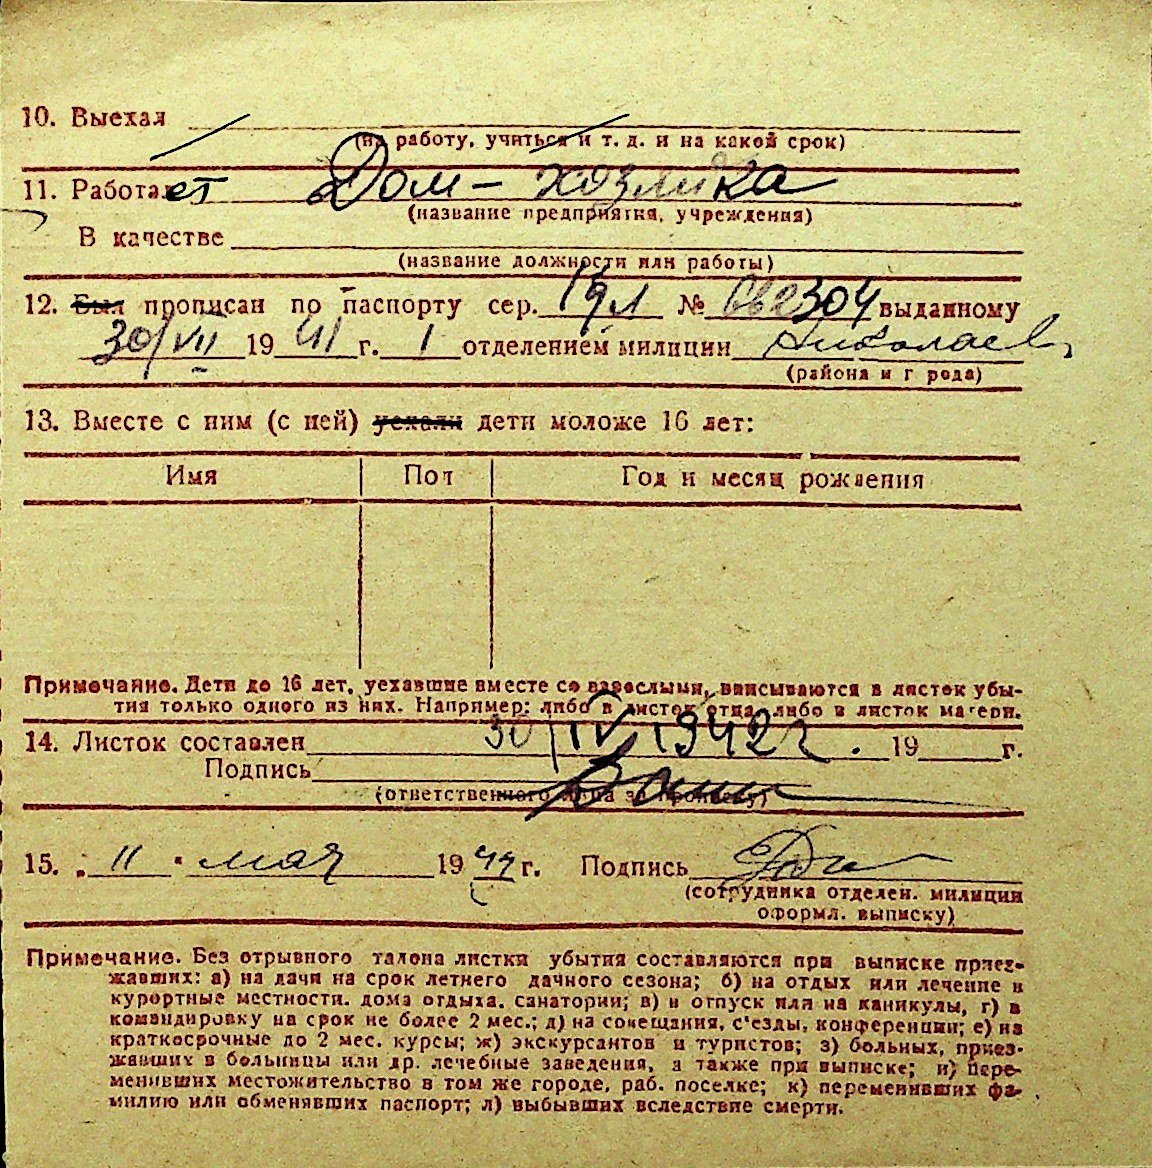 10. Выехал
(на работу, учиться и т. д. и на какой срок)
11. Работает Дом-хозяйка
(название предприятия, учреждения)
В качестве
(название должности или работы)
12. Был прописан по паспорту сер. № 304 выданному
30/VII 1941 г. 1 отделением милиции Николаев
(района и г рода)
13. Вместе с ним (с ней) уехали дети моложе 16 лет:
Имя Пол Год и месяц рождения
Примечание. Дети до 16 лет, уехавшие вместе со взрослыми, вписываются в листок убы-
тия только одного из них. Например: либо в листок отца, либо в листок матери.
14. Листок составлен 30/IV 1942 г. 19 г.
Подпись
(ответственного лица за прописку)
15. „11" мая 1944 г. Подпись
(сотрудника отделен. милиции
оформл. выписку)
Примечание. Без отрывного талона листки убытия составляются при выписке приез-
жавших: а) на дачи на срок летнего дачного сезона; б) на отдых или лечение в
курортные местности. дома отдыха. санатории; в) в отпуск или на каникулы, г) в
командировку на срок не более 2 мес.; д) на совещания, с'езды, конференции; е) на
краткосрочные до 2 мес. курсы; ж) экскурсантов и туристов; з) больных, приез-
жавших в больницы или др. лечебные заведения, а также при выписке; и) пере-
менивших местожительство в том же городе, раб. поселке; к) переменивших фа-
милию или обменявших паспорт; л) выбывших вследствие смерти.